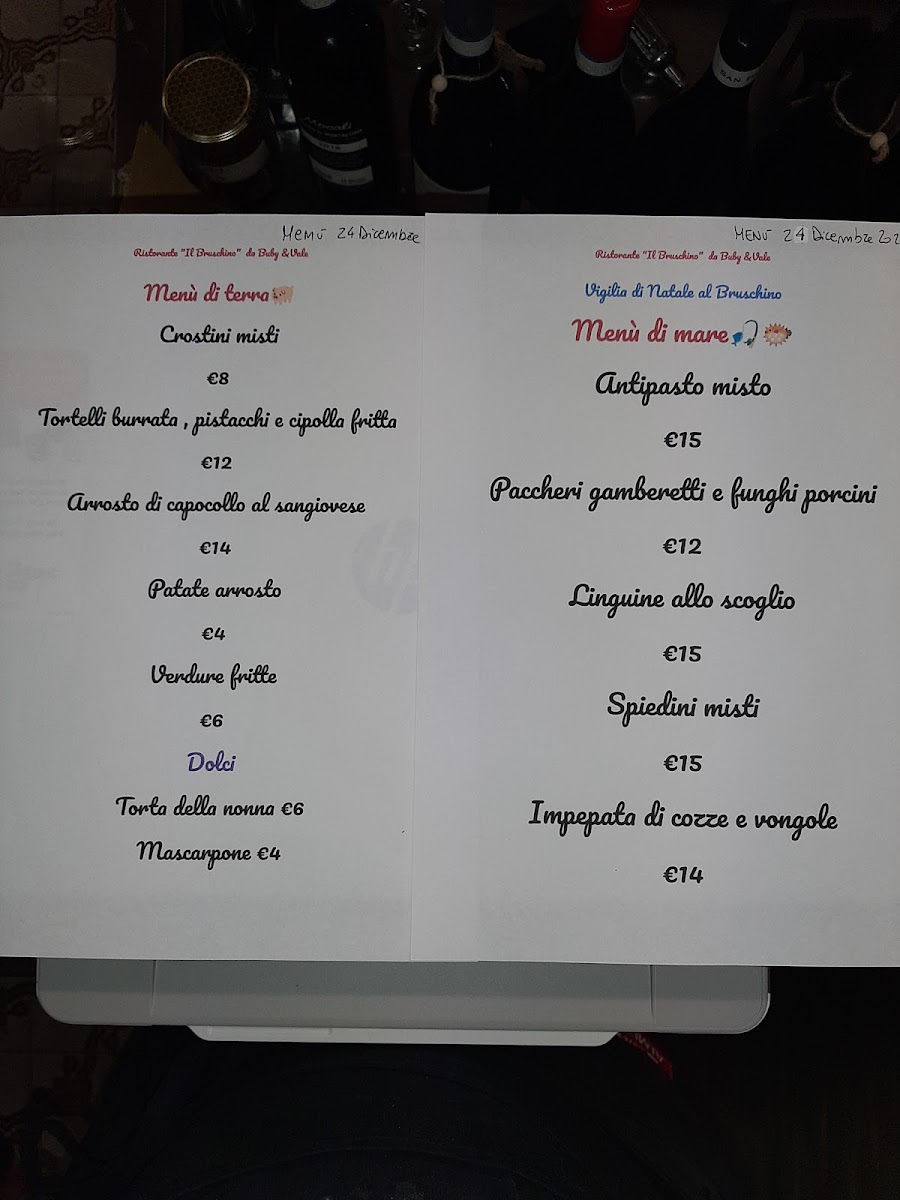 Menù 24 Dicembre
Ristorante "Il Bruschino" da Buby & Vale
Menù di terra
Crostini misti
€8
Tortelli burrata , pistacchi e cipolla fritta
€12
Arrosto di capocollo al sangiovese
€14
Patate arrosto
€4
Verdure fritte
€6
Dolci
Torta della nonna €6
Mascarpone €4
MENÙ 24 Dicembre 202
Ristorante "Il Bruschino" da Buby & Vale
Vigilia di Natale al Bruschino
Menù di mare
Antipasto misto
€15
Paccheri gamberetti e funghi porcini
€12
Linguine allo scoglio
€15
Spiedini misti
€15
Impepata di cozze e vongole
€14
hp
SAN